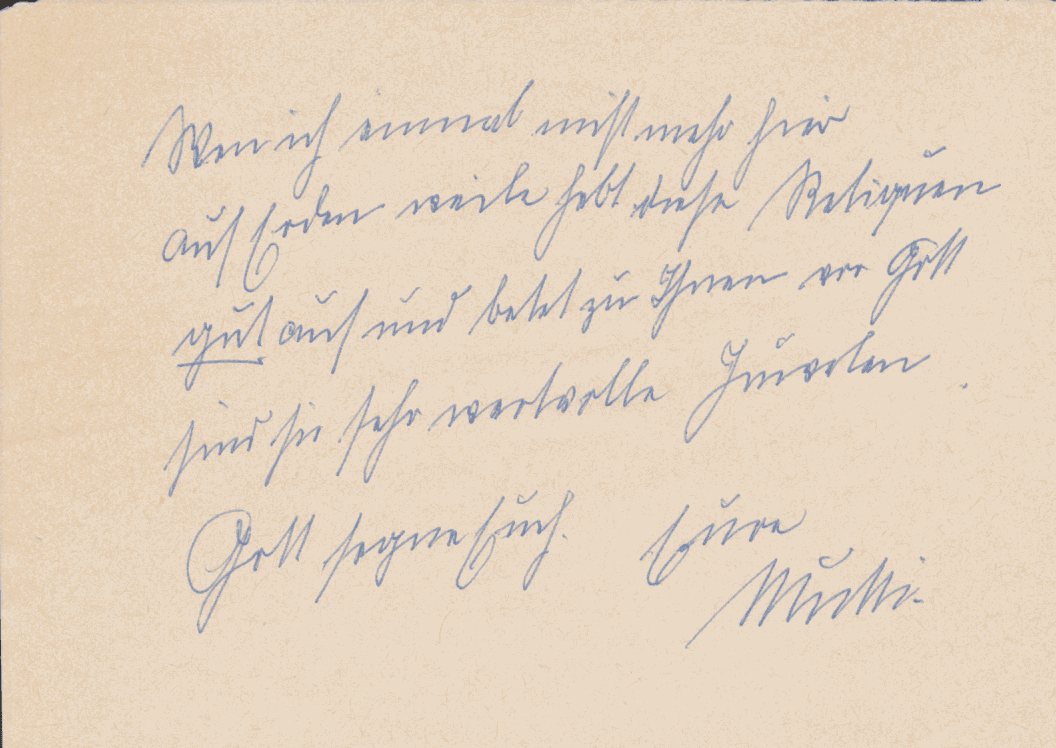 Wen ich einmal nicht mehr hier
auf Erden weile hebt diese Reliquen
gut auf und betet zu Ihnen vor Gott
sind sie sehr wertvolle Juwelen
Gott segne Euch. Eure
Mutti.